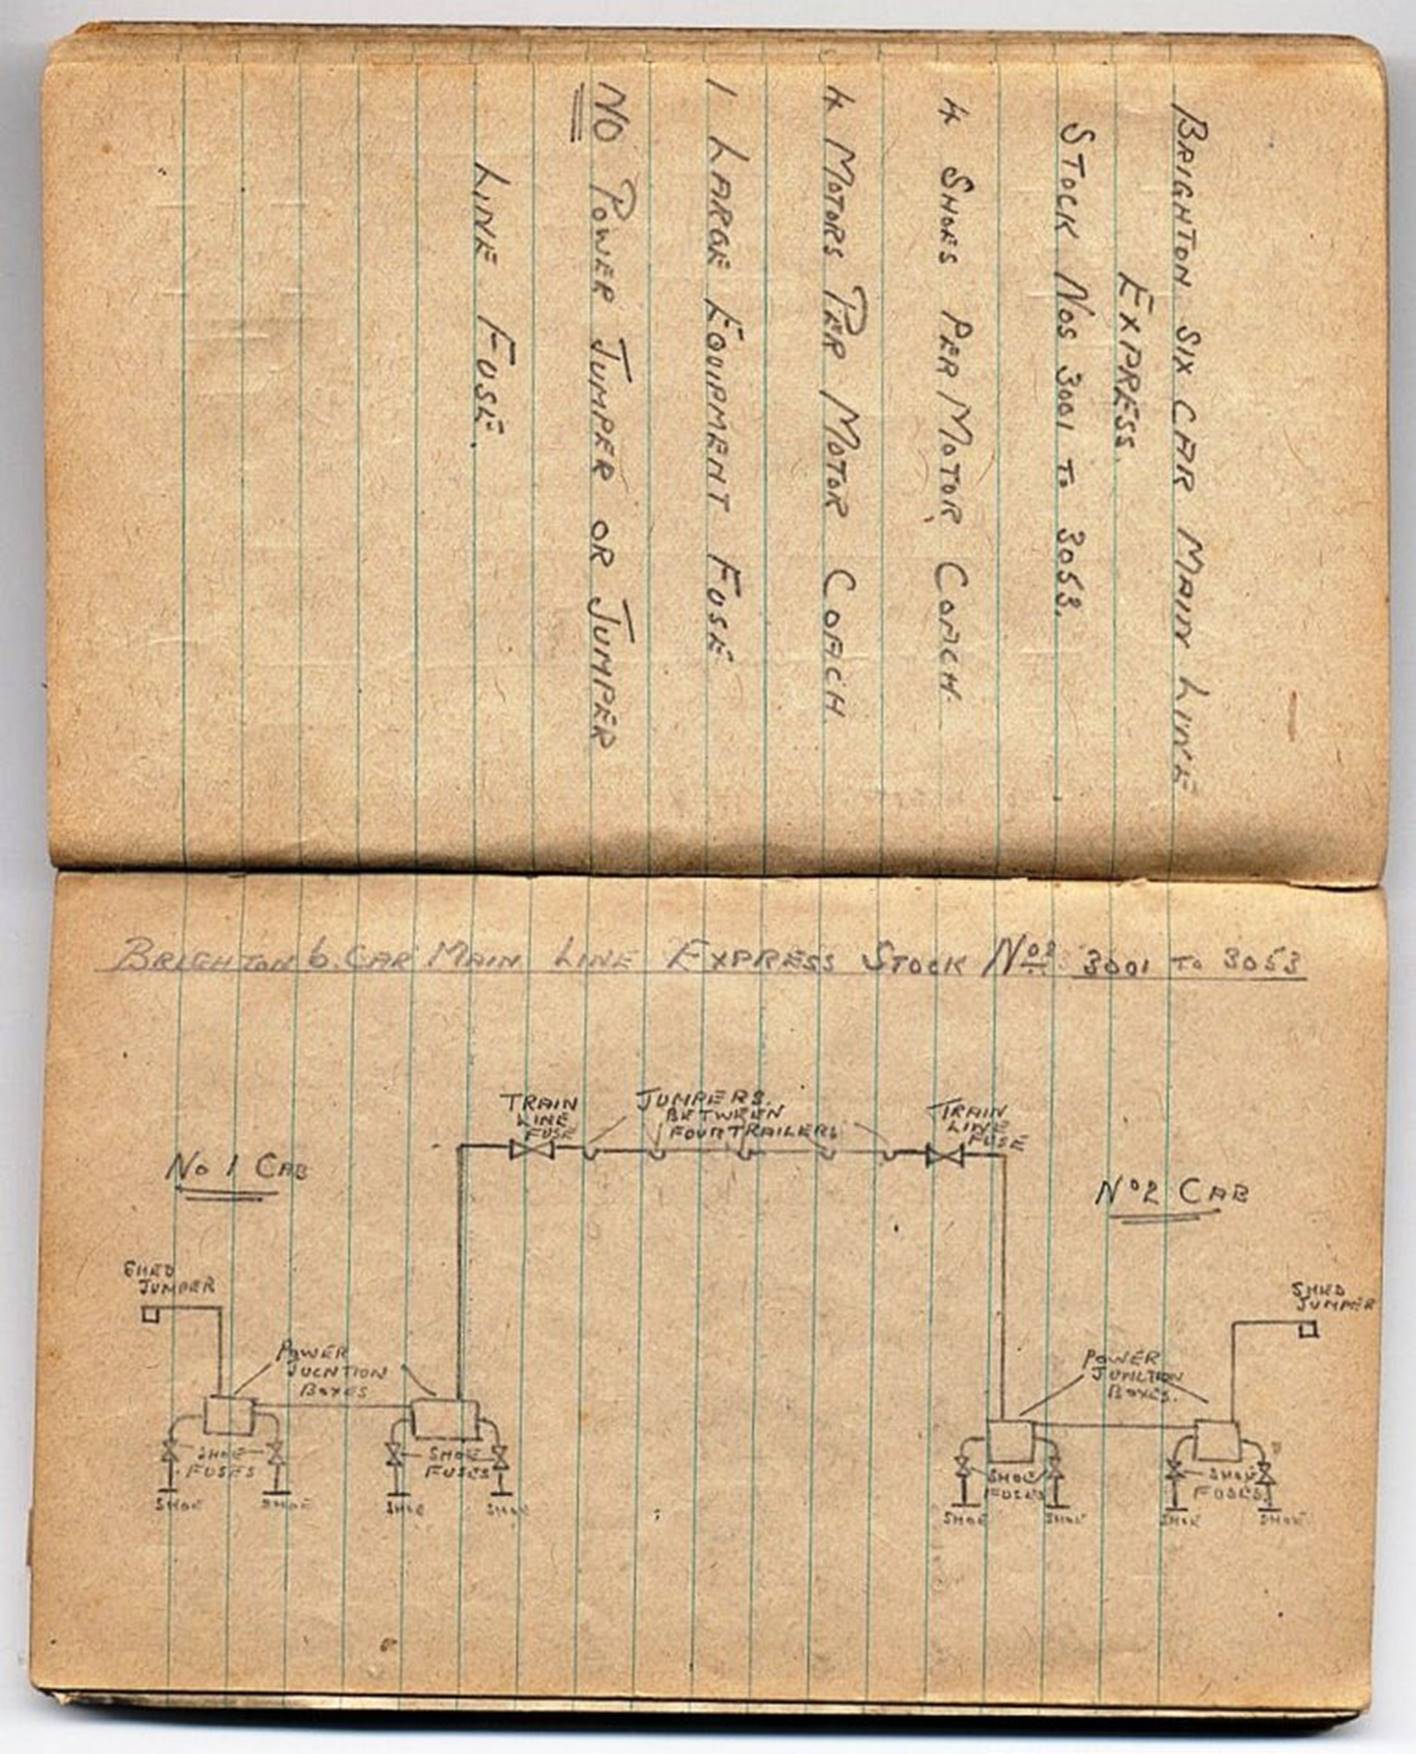 BRIGHTON SIX CAR MAIN LINE
EXPRESS.
STOCK NOS 3001 TO 3053.
4 SHOES PER MOTOR COACH.
4 MOTORS PER MOTOR COACH
1 LARGE EQUIPMENT FUSE
NO POWER JUMPER OR JUMPER
LINE FUSE.
BRIGHTON 6. CAR MAIN LINE EXPRESS STOCK NOS 3001 TO 3053
TRAIN
LINE
FUSE
JUMPERS.
BETWEEN
FOUR TRAILERS
TRAIN
LINE
FUSE
No 1 CAB
No 2 CAB
SHED
JUMPER
SHED
JUMPER
POWER
JUCNTION
BOXES
POWER
JUNCTION
BOXES.
SHOE
FUSES
SHOE
FUSES
SHOE
FUSES
SHOE
FUSES.
SHOE
SHOE
SHOE
SHOE
SHOE
SHOE
SHOE
SHOE